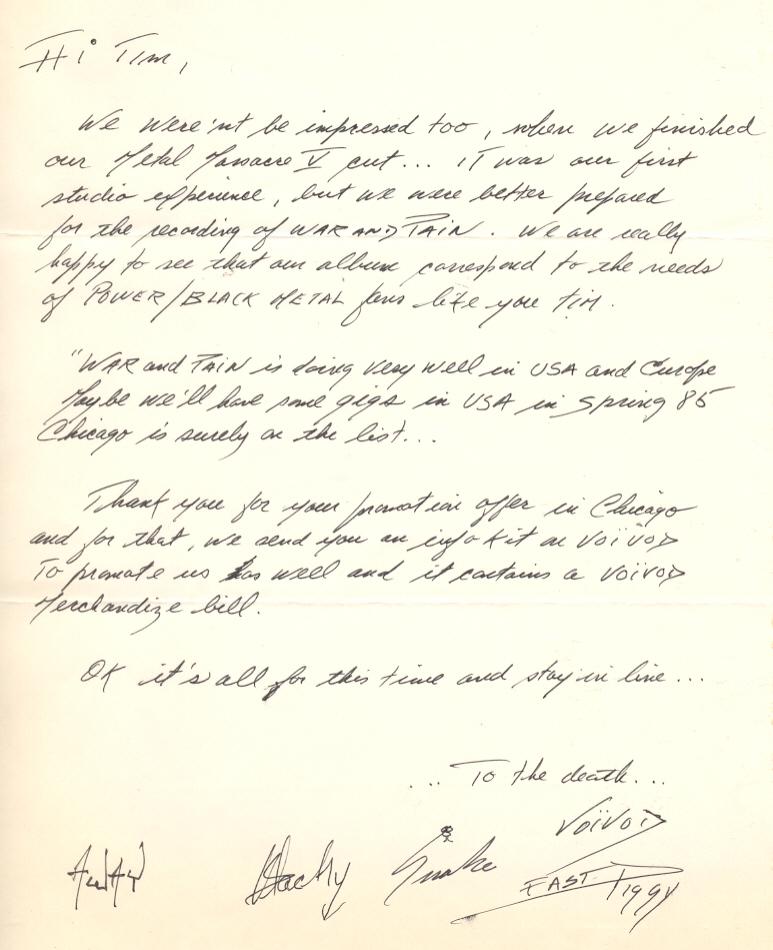 Hi Tim,
We were'nt be impressed too, when we finished
our Metal Massacre V cut... it was our first
studio experience, but we were better prepared
for the recording of WAR AND PAIN. We are really
happy to see that our album correspond to the needs
of POWER/BLACK METAL fans like you TIM.
"WAR and PAIN is doing very well in USA and Europe
Maybe we'll have some gigs in USA in Spring 85
Chicago is surely on the list...
Thank you for your promotion offer in Chicago
and for that, we send you an info kit on VOÏVOD
To promote us as well and it contains a VOÏVOD
Merchandize bill.
OK it's all for this time and stay in line...
... To the death...
VOÏVOD
AWAY Blacky Snake FAST Piggy